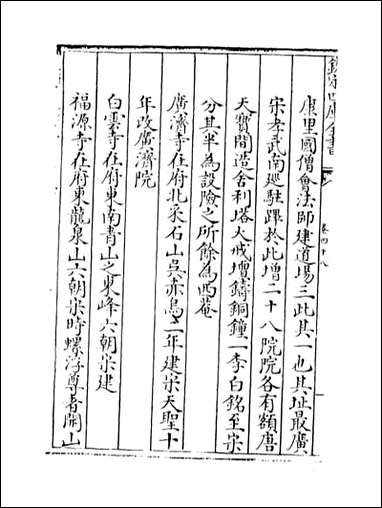 欽定四庫全書
卷四十八
康里國僧會法師建道場三此其一也其址最廣
宋孝武南廵駐蹕於此增二十八院院各有額唐
天寳間造舍利塔大戒壇鑄銅鐘一李白銘至宋
分其半為設險之所餘為西菴
廣濟寺在府北采石山吳赤烏二年建宋天聖十
年改廣濟院
白雲寺在府東南青山之東峰六朝宋建
福源寺在府東龍泉山六朝宋時螺浮尊者開山